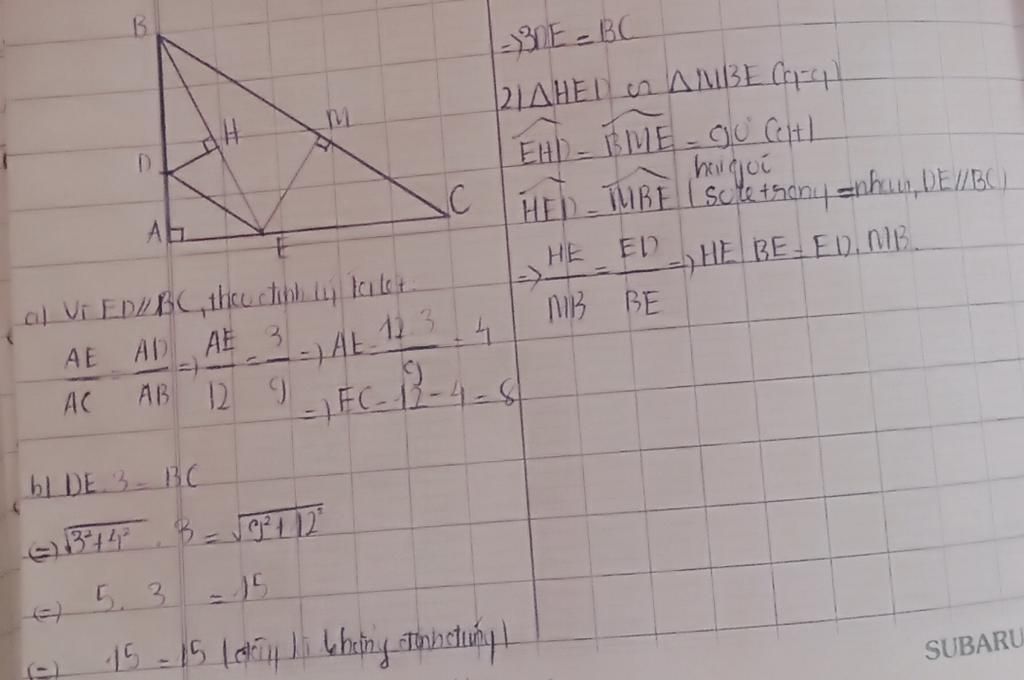 B
H
M
D
C
A
E
a) Vì ED//BC, theo định lý talet
AE/AC = AD/AB => AE/12 = 3/9 => AE = 12.3/9 = 4
=> EC = 12 - 4 = 8
b) DE.3 = BC
(=) √3²+4² . 3 = √9²+12²
(=) 5. 3 = 15
(=) 15 = 15 (đây là khẳng định đúng)
=> 3DE = BC
2) △HED ∽ △MBE (g-g)
EHD = BME = 90° (gt)
hai góc
HED = MBE (so le trong = nhau, DE//BC)
=> HE/MB = ED/BE => HE BE = ED. MB.
SUBARU